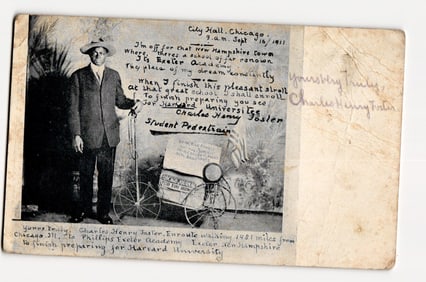 City Hall, Chicago,
9. a.m. Sept 16/1911
I'm off for that New Hampshire town
Where, there's a school of far renown
Its Exeter Academy
place of my dream constantly
When I finish this pleasant stroll
at that great school I shall enroll
To finish preparing you see
For Harvard Universitee
Charles Henry Foster
Student Pedestrian
Yours very truly,
Charles Henry Foster.
Yours truly, Charles Henry Foster, Enroute walking miles from
Chicago, Ill., to Phillips Exeter Academy Exeter, New Hampshire
to finish preparing for Harvard University